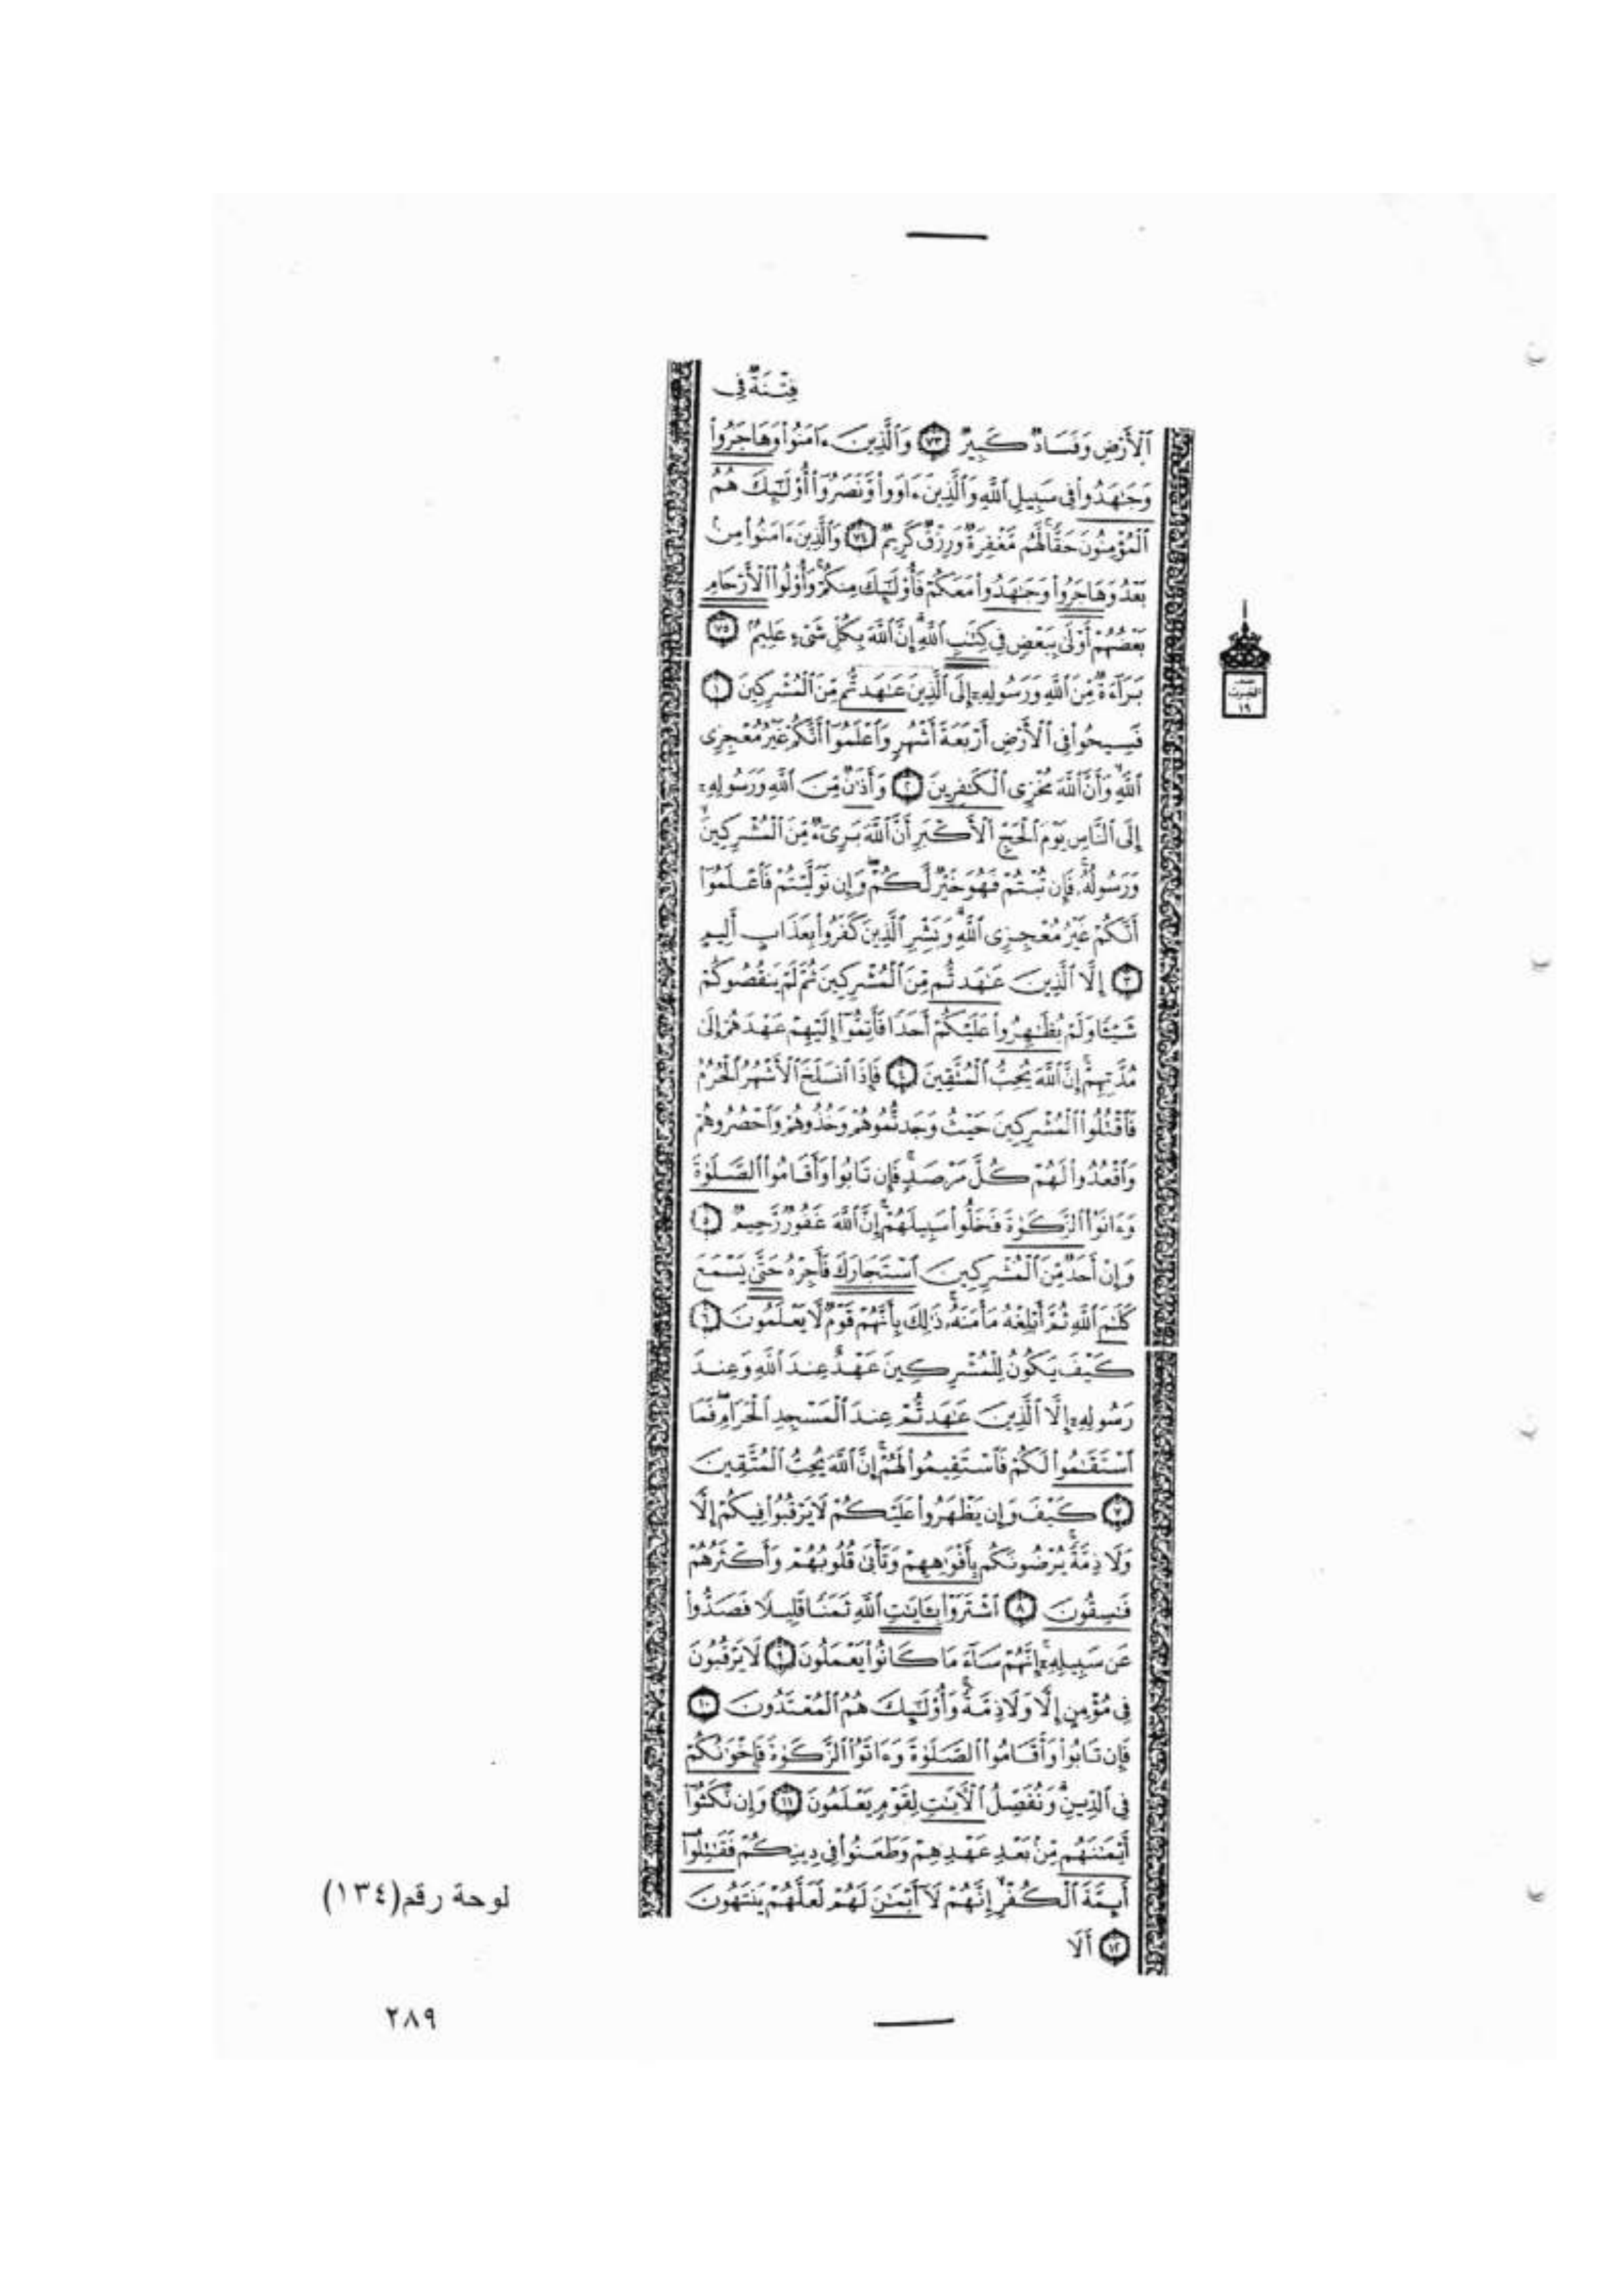 فِتْنَةٌ فِى
ٱلْأَرْضِ وَفَسَادٌ كَبِيرٌ ٧٣ وَٱلَّذِينَ ءَامَنُوا۟ وَهَاجَرُوا۟
وَجَٰهَدُوا۟ فِى سَبِيلِ ٱللَّهِ وَٱلَّذِينَ ءَاوَوا۟ وَّنَصَرُوٓا۟ أُو۟لَٰٓئِكَ هُمُ
ٱلْمُؤْمِنُونَ حَقًّا ۚ لَّهُم مَّغْفِرَةٌ وَرِزْقٌ كَرِيمٌ ٧٤ وَٱلَّذِينَ ءَامَنُوا۟ مِنۢ
بَعْدُ وَهَاجَرُوا۟ وَجَٰهَدُوا۟ مَعَكُمْ فَأُو۟لَٰٓئِكَ مِنكُمْ ۚ وَأُو۟لُوا۟ ٱلْأَرْحَامِ
بَعْضُهُمْ أَوْلَىٰ بِبَعْضٍ فِى كِتَٰبِ ٱللَّهِ ۗ إِنَّ ٱللَّهَ بِكُلِّ شَىْءٍ عَلِيمٌۢ ٧٥
بَرَآءَةٌ مِّنَ ٱللَّهِ وَرَسُولِهِۦٓ إِلَى ٱلَّذِينَ عَٰهَدتُّم مِّنَ ٱلْمُشْرِكِينَ ١
فَسِيحُوا۟ فِى ٱلْأَرْضِ أَرْبَعَةَ أَشْهُرٍ وَٱعْلَمُوٓا۟ أَنَّكُمْ غَيْرُ مُعْجِزِى
ٱللَّهِ ۙ وَأَنَّ ٱللَّهَ مُخْزِى ٱلْكَٰفِرِينَ ٢ وَأَذَٰنٌ مِّنَ ٱللَّهِ وَرَسُولِهِۦٓ
إِلَى ٱلنَّاسِ يَوْمَ ٱلْحَجِّ ٱلْأَكْبَرِ أَنَّ ٱللَّهَ بَرِىٓءٌ مِّنَ ٱلْمُشْرِكِينَ ۙ
وَرَسُولُهُۥ ۚ فَإِن تُبْتُمْ فَهُوَ خَيْرٌ لَّكُمْ ۖ وَإِن تَوَلَّيْتُمْ فَٱعْلَمُوٓا۟
أَنَّكُمْ غَيْرُ مُعْجِزِى ٱللَّهِ ۗ وَبَشِّرِ ٱلَّذِينَ كَفَرُوا۟ بِعَذَابٍ أَلِيمٍ
٣ إِلَّا ٱلَّذِينَ عَٰهَدتُّم مِّنَ ٱلْمُشْرِكِينَ ثُمَّ لَمْ يَنقُصُوكُمْ
شَيْـًٔا وَلَمْ يُظَٰهِرُوا۟ عَلَيْكُمْ أَحَدًا فَأَتِمُّوٓا۟ إِلَيْهِمْ عَهْدَهُمْ إِلَىٰ
مُدَّتِهِمْ ۚ إِنَّ ٱللَّهَ يُحِبُّ ٱلْمُتَّقِينَ ٤ فَإِذَا ٱنسَلَخَ ٱلْأَشْهُرُ ٱلْحُرُمُ
فَٱقْتُلُوا۟ ٱلْمُشْرِكِينَ حَيْثُ وَجَدتُّمُوهُمْ وَخُذُوهُمْ وَٱحْصُرُوهُمْ
وَٱقْعُدُوا۟ لَهُمْ كُلَّ مَرْصَدٍ ۚ فَإِن تَابُوا۟ وَأَقَامُوا۟ ٱلصَّلَوٰةَ
وَءَاتَوُا۟ ٱلزَّكَوٰةَ فَخَلُّوا۟ سَبِيلَهُمْ ۚ إِنَّ ٱللَّهَ غَفُورٌ رَّحِيمٌ ٥
وَإِنْ أَحَدٌ مِّنَ ٱلْمُشْرِكِينَ ٱسْتَجَارَكَ فَأَجِرْهُ حَتَّىٰ يَسْمَعَ
كَلَٰمَ ٱللَّهِ ثُمَّ أَبْلِغْهُ مَأْمَنَهُۥ ۚ ذَٰلِكَ بِأَنَّهُمْ قَوْمٌ لَّا يَعْلَمُونَ ٦
كَيْفَ يَكُونُ لِلْمُشْرِكِينَ عَهْدٌ عِندَ ٱللَّهِ وَعِندَ
رَسُولِهِۦٓ إِلَّا ٱلَّذِينَ عَٰهَدتُّمْ عِندَ ٱلْمَسْجِدِ ٱلْحَرَامِ ۖ فَمَا
ٱسْتَقَٰمُوا۟ لَكُمْ فَٱسْتَقِيمُوا۟ لَهُمْ ۚ إِنَّ ٱللَّهَ يُحِبُّ ٱلْمُتَّقِينَ
٧ كَيْفَ وَإِن يَظْهَرُوا۟ عَلَيْكُمْ لَا يَرْقُبُوا۟ فِيكُمْ إِلًّا
وَلَا ذِمَّةً ۚ يُرْضُونَكُم بِأَفْوَٰهِهِمْ وَتَأْبَىٰ قُلُوبُهُمْ وَأَكْثَرُهُمْ
فَٰسِقُونَ ٨ ٱشْتَرَوْا۟ بِـَٔايَٰتِ ٱللَّهِ ثَمَنًا قَلِيلًا فَصَدُّوا۟
عَن سَبِيلِهِۦٓ ۚ إِنَّهُمْ سَآءَ مَا كَانُوا۟ يَعْمَلُونَ ٩ لَا يَرْقُبُونَ
فِى مُؤْمِنٍ إِلًّا وَلَا ذِمَّةً ۚ وَأُو۟لَٰٓئِكَ هُمُ ٱلْمُعْتَدُونَ ١٠
فَإِن تَابُوا۟ وَأَقَامُوا۟ ٱلصَّلَوٰةَ وَءَاتَوُا۟ ٱلزَّكَوٰةَ فَإِخْوَٰنُكُمْ
فِى ٱلدِّينِ ۗ وَنُفَصِّلُ ٱلْـَٔايَٰتِ لِقَوْمٍ يَعْلَمُونَ ١١ وَإِن نَّكَثُوٓا۟
أَيْمَٰنَهُم مِّنۢ بَعْدِ عَهْدِهِمْ وَطَعَنُوا۟ فِى دِينِكُمْ فَقَٰتِلُوٓا۟
أَئِمَّةَ ٱلْكُفْرِ ۙ إِنَّهُمْ لَآ أَيْمَٰنَ لَهُمْ لَعَلَّهُمْ يَنتَهُونَ
١٢ أَلَا
١٩
لوحة رقم(١٣٤)
٢٨٩